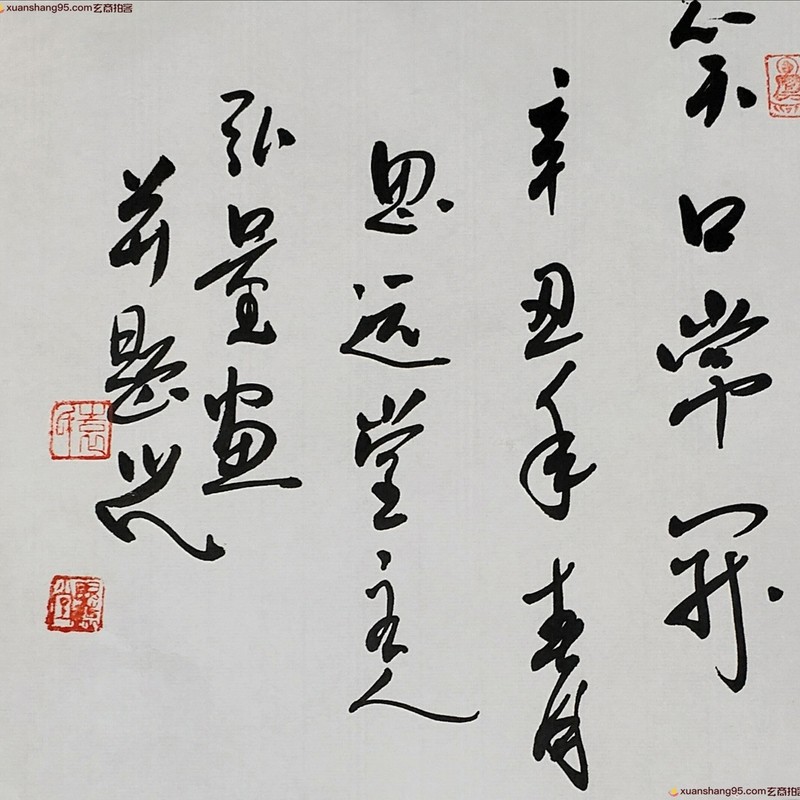 xuanshang95.com玄商拍客
笑口常開
辛丑年春月
思远堂主人
弘量画
并题
xuanshang95.com玄商拍客